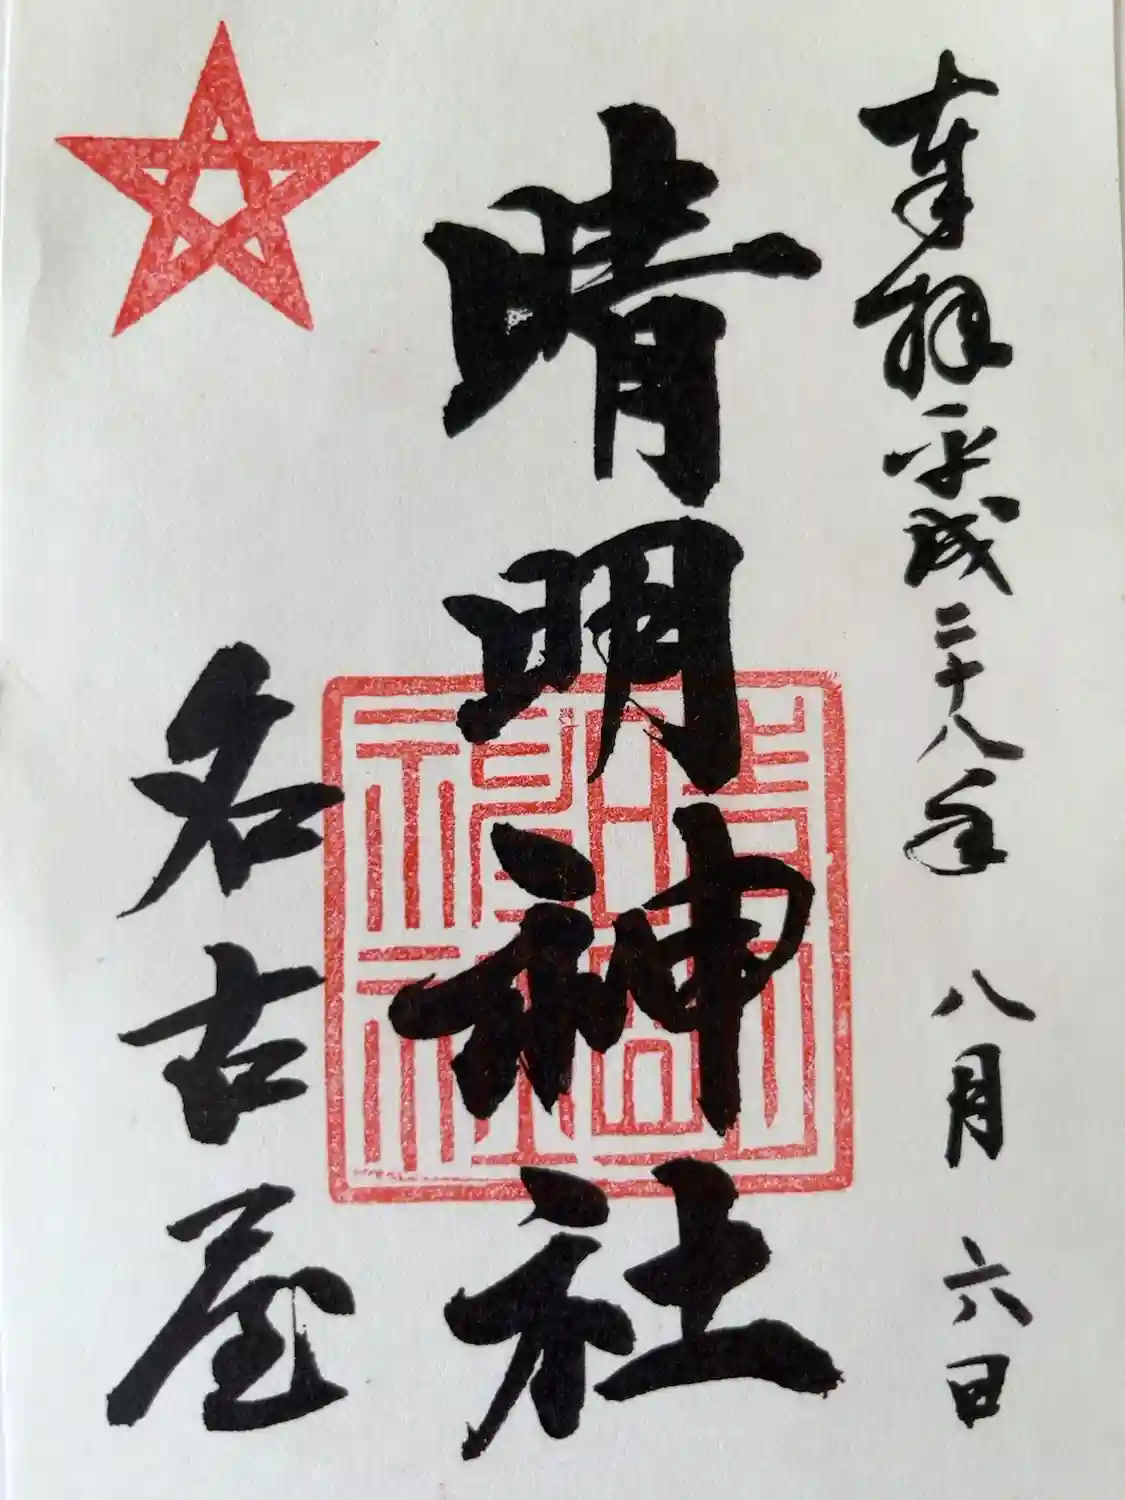 奉拝 平成二十八年 八月 六日
晴明神社
名古屋